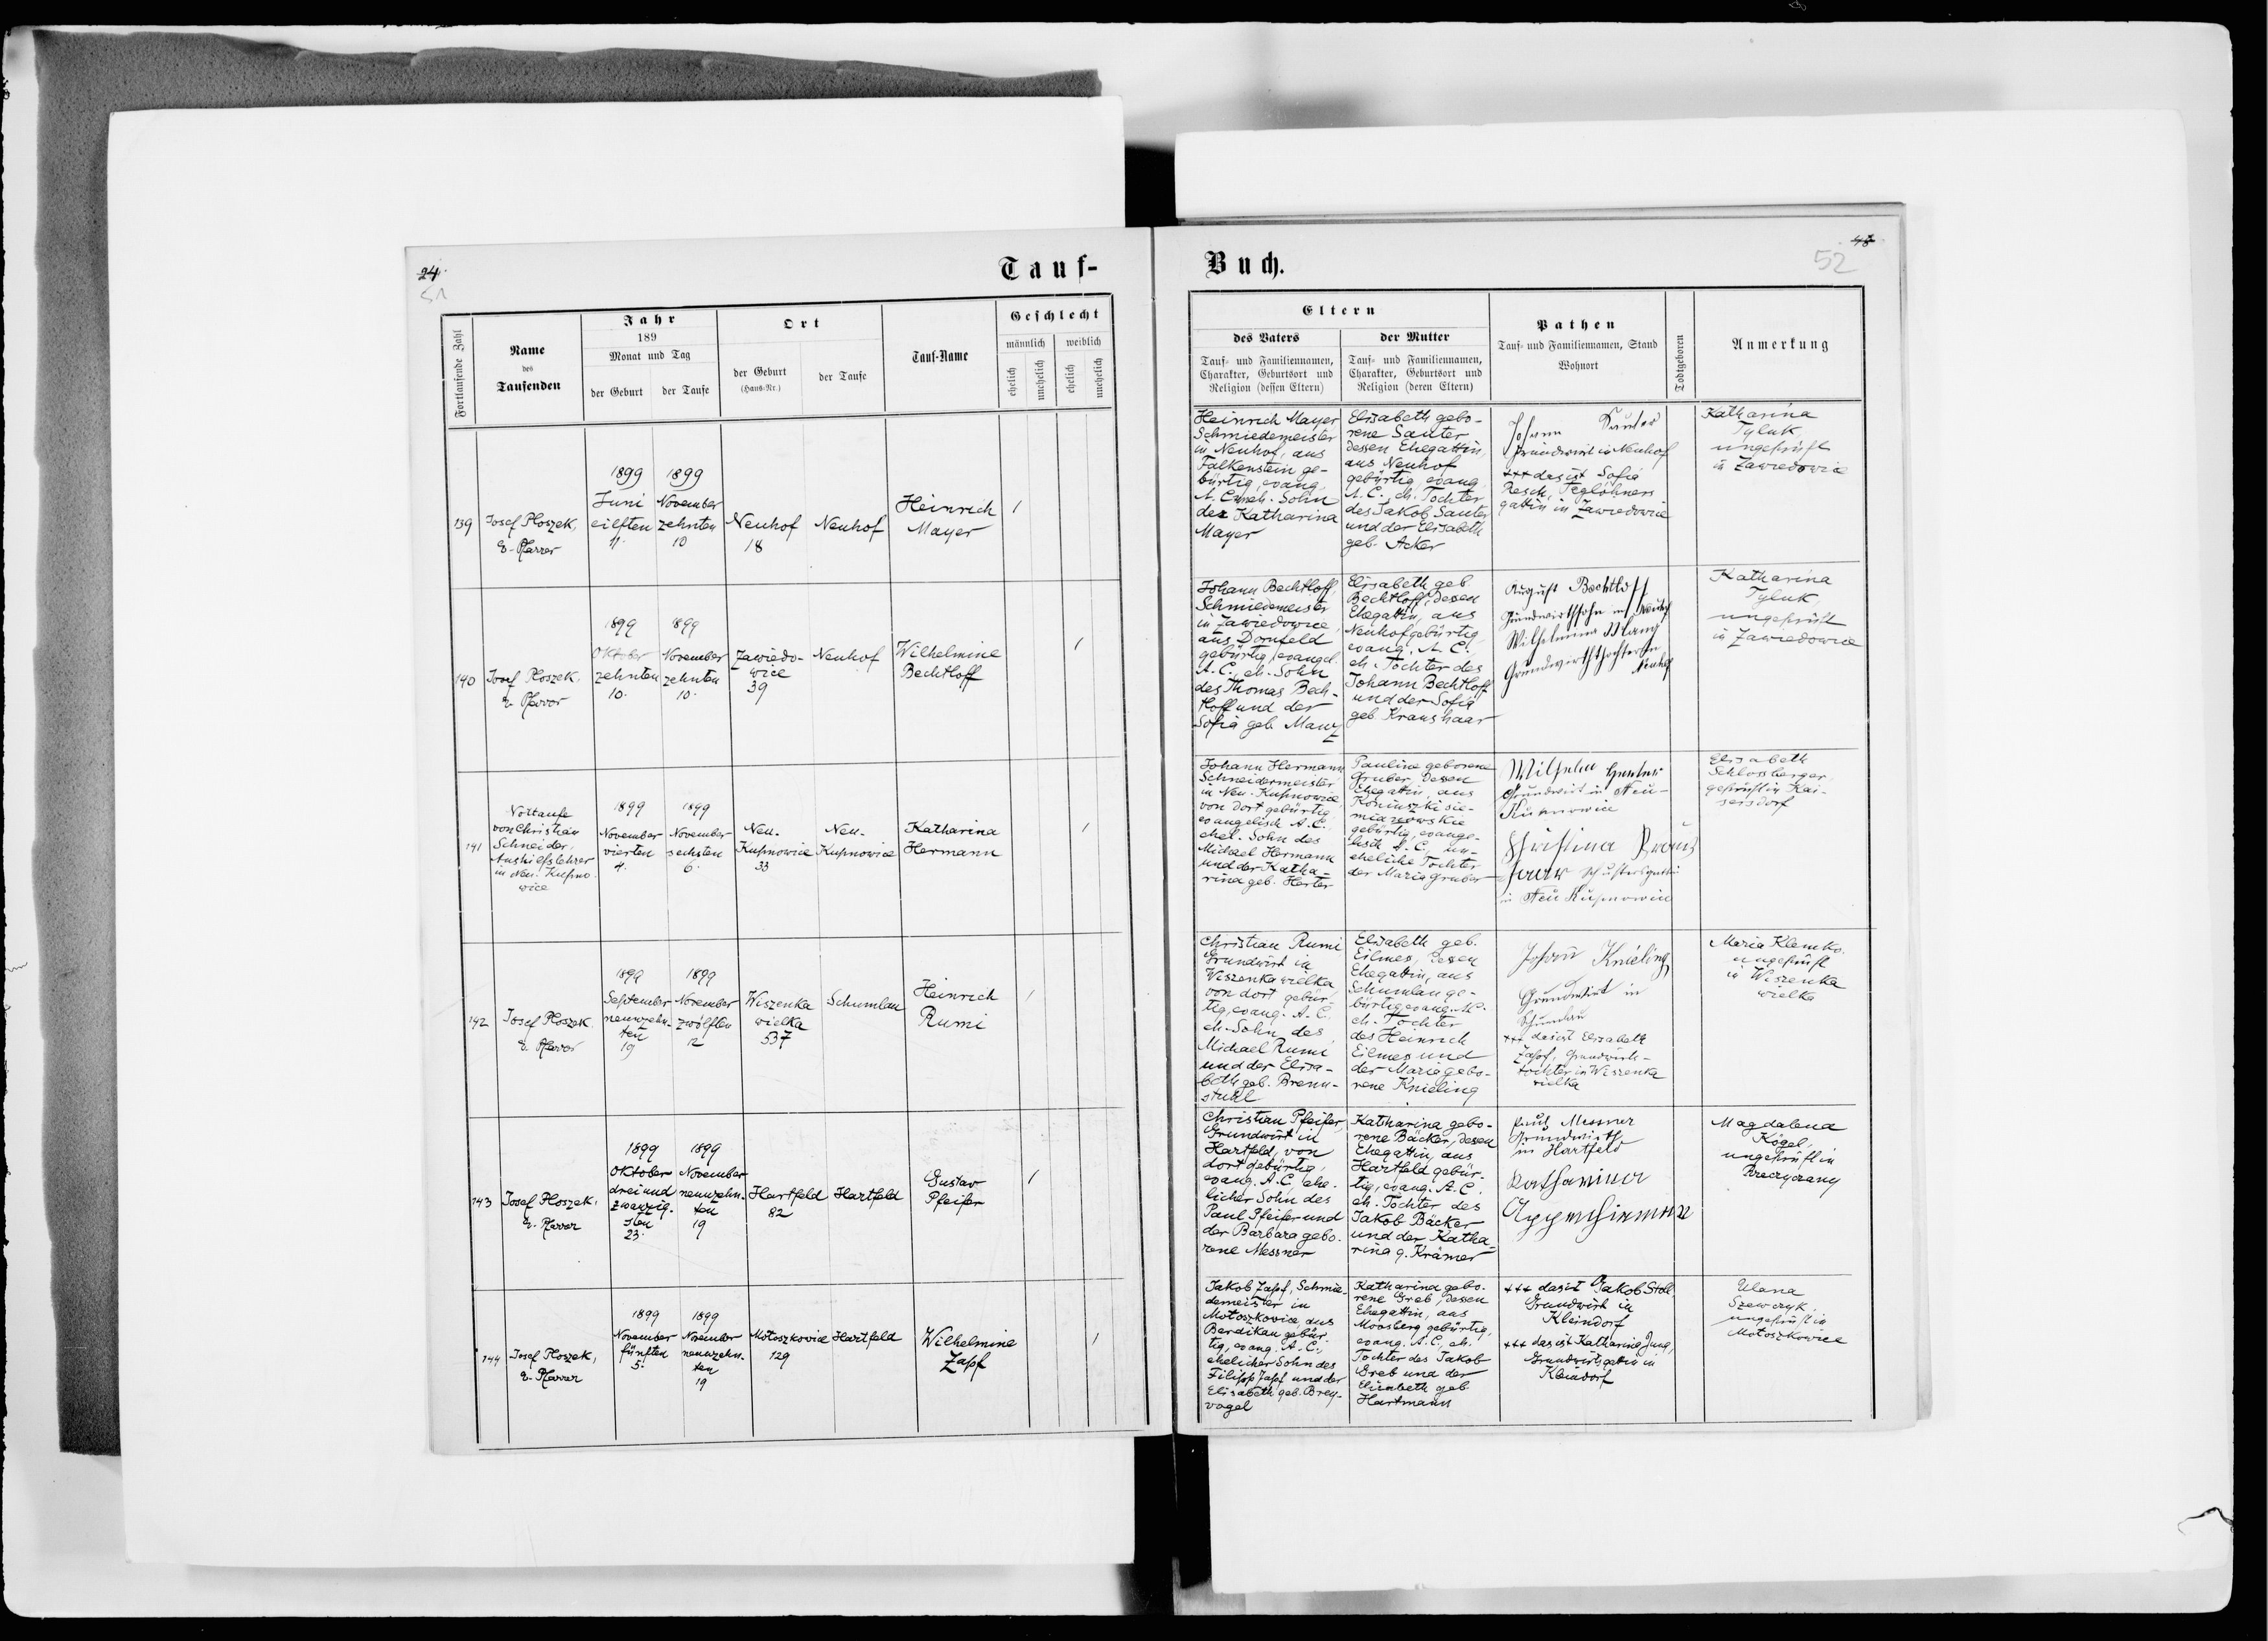 24
51
Tauf-
Fortlaufende Zahl
Name
des
Taufenden
Jahr
189
Monat und Tag
der Geburt
der Taufe
Ort
der Geburt
(Haus-Nr.)
der Taufe
Tauf-Name
Geschlecht
männlich
weiblich
ehelich
unehelich
ehelich
unehelich
139
Josef Ploszek,
e. Pfarrer
1899
Juni
eilften
11.
1899
November
zehnten
10
Neuhof
18
Neuhof
Heinrich
Mayer
1
140
Josef Ploszek,
e. Pfarrer
1899
Oktober
zehnten
10.
1899
November
zehnten
10.
Zawiedo-
wice
39
Neuhof
Wilhelmine
Bechtloff
1
141
Nottaufe
von Christian
Schneider,
Aushilfslehrer
in Neu-Kupno-
wice
1899
November
vierten
4.
1899
November
sechsten
6.
Neu-
Kupnowice
33
Neu-
Kupnowice
Katharina
Hermann
1
142
Josef Ploszek,
e. Pfarrer
1899
September
neunzehn-
ten
19
1899
November
zwölften
12
Wiszenka
wielka
537
Schumlau
Heinrich
Rumi
1
143
Josef Ploszek,
e. Pfarrer
1899
Oktober
dreiund
zwanzig-
sten
23.
1899
November
neunzehn-
ten
19
Hartfeld
82
Hartfeld
Gustav
Pfeifer
1
144
Josef Ploszek,
e. Pfarrer
1899
November
fünften
5.
1899
November
neunzehn-
ten
19
Motoszkowice
129
Hartfeld
Wilhelmine
Zapf
1
Buch.
52
Eltern
des Vaters
Tauf- und Familiennamen,
Charakter, Geburtsort und
Religion (dessen Eltern)
der Mutter
Tauf- und Familiennamen,
Charakter, Geburtsort und
Religion (deren Eltern)
Pathen
Tauf- und Familiennamen, Stand
Wohnort
Todtgeboren
Anmerkung
Heinrich Mayer
Schmiedemeister
in Neuhof, aus
Falkenstein ge-
bürtig, evang.
A. C. Sohn
der Katharina
Mayer
Elisabeth gebo-
rene Sauter
dessen Ehegattin,
aus Neuhof
gebürtig, evang.
A. C., eh. Tochter
des Jakob Sauter
und der Elisabeth
geb. Acker
Johann Sauter
Grundwirt in Neuhof
+++ das ist Sofia
Resch, Taglöhners
gattin in Zawiedowice
Katharina
Tyluk,
ungeprüft
in Zawiedowice
Johann Bechtloff,
Schmiedemeister
in Zawiedowice,
aus Dornfeld
gebürtig, evangel.
A. C., eh. Sohn
des Thomas Bech-
tloff und der
Sofia geb. Manz
Elisabeth geb.
Bechtloff, dessen
Ehegattin, aus
Neuhof gebürtig,
evang. A. C.,
eh. Tochter des
Johann Bechtloff
und der Sofia
geb. Kraushaar
August Bechtloff
Grundwirthsohn in Neuhof
Wilhelmina
Grundwirthstochter in
Neuhof
Katharina
Tyluk,
ungeprüft
in Zawiedowice
Johann Hermann
Schneidermeister
in Neu-Kupnowice
von dort gebürtig
evangelisch A. C.,
ehel. Sohn des
Michael Hermann
und der Katha-
rina geb. Herter
Pauline geborene
Gruber, dessen
Ehegattin, aus
Koniuszki sie-
mianowskie
gebürtig, evange-
lisch A. C., un-
eheliche Tochter
der Maria Gruber
Wilhelm
Grundwirt in Neu-
Kupnowice
Christina Kraus
haar Schustersgattin
in Neu Kupnowice
Elisabeth
Schlossberger,
geprüft in Kai-
sersdorf
Christian Rumi
Grundwirt in
Wiszenka wielka
von dort gebür-
tig, evang. A. C.,
eh. Sohn des
Michael Rumi
und der Elisa-
beth geb. Brenn-
stuhl
Elisabeth geb.
Eilmes, dessen
Ehegattin, aus
Schumlau ge-
bürtig, evang. A. C.
eh. Tochter
des Heinrich
Eilmes und
der Marie gebo-
rene Knieling
Johann Knieling
Grundwirt in
Schumlau
+++ das ist Elisabeth
Zapf, Grundwirts-
tochter in Wiszenka
wielka
Maria Klemko,
ungeprüft
in Wiszenka
wielka
Christian Pfeifer,
Grundwirt in
Hartfeld, von
dort gebürtig,
evang. A. C., ehe-
licher Sohn des
Paul Pfeifer und
der Barbara gebo-
rene Messner
Katharina gebo-
rene Bäcker, dessen
Ehegattin, aus
Hartfeld gebür-
tig, evang. A. C.
eh. Tochter des
Jakob Bäcker
und der Katha-
rina g. Krämer
Paul Messner
Grundwirth
in Hartfeld
Katharina
Magdalena
Kögel,
ungeprüft in
Jakob Zapf, Schmie-
demeister in
Motoszkowice, aus
Berdikau gebür-
tig, evang. A. C.,
ehelicher Sohn des
Filipp Zapf und der
Elisabeth geb. Brey-
vogel
Katharina gebo-
rene Greb, dessen
Ehegattin, aus
Moosberg gebürtig,
evang. A. C., eh.
Tochter des Jakob
Greb und der
Elisabeth geb.
Hartmann
+++ das ist Jakob Stoll
Grundwirt in
Kleindorf
+++ das ist Katharina Jung,
Grundwirtsgattin in
Kleindorf
Ulana
Szewczyk,
ungeprüft in
Motoszkowice